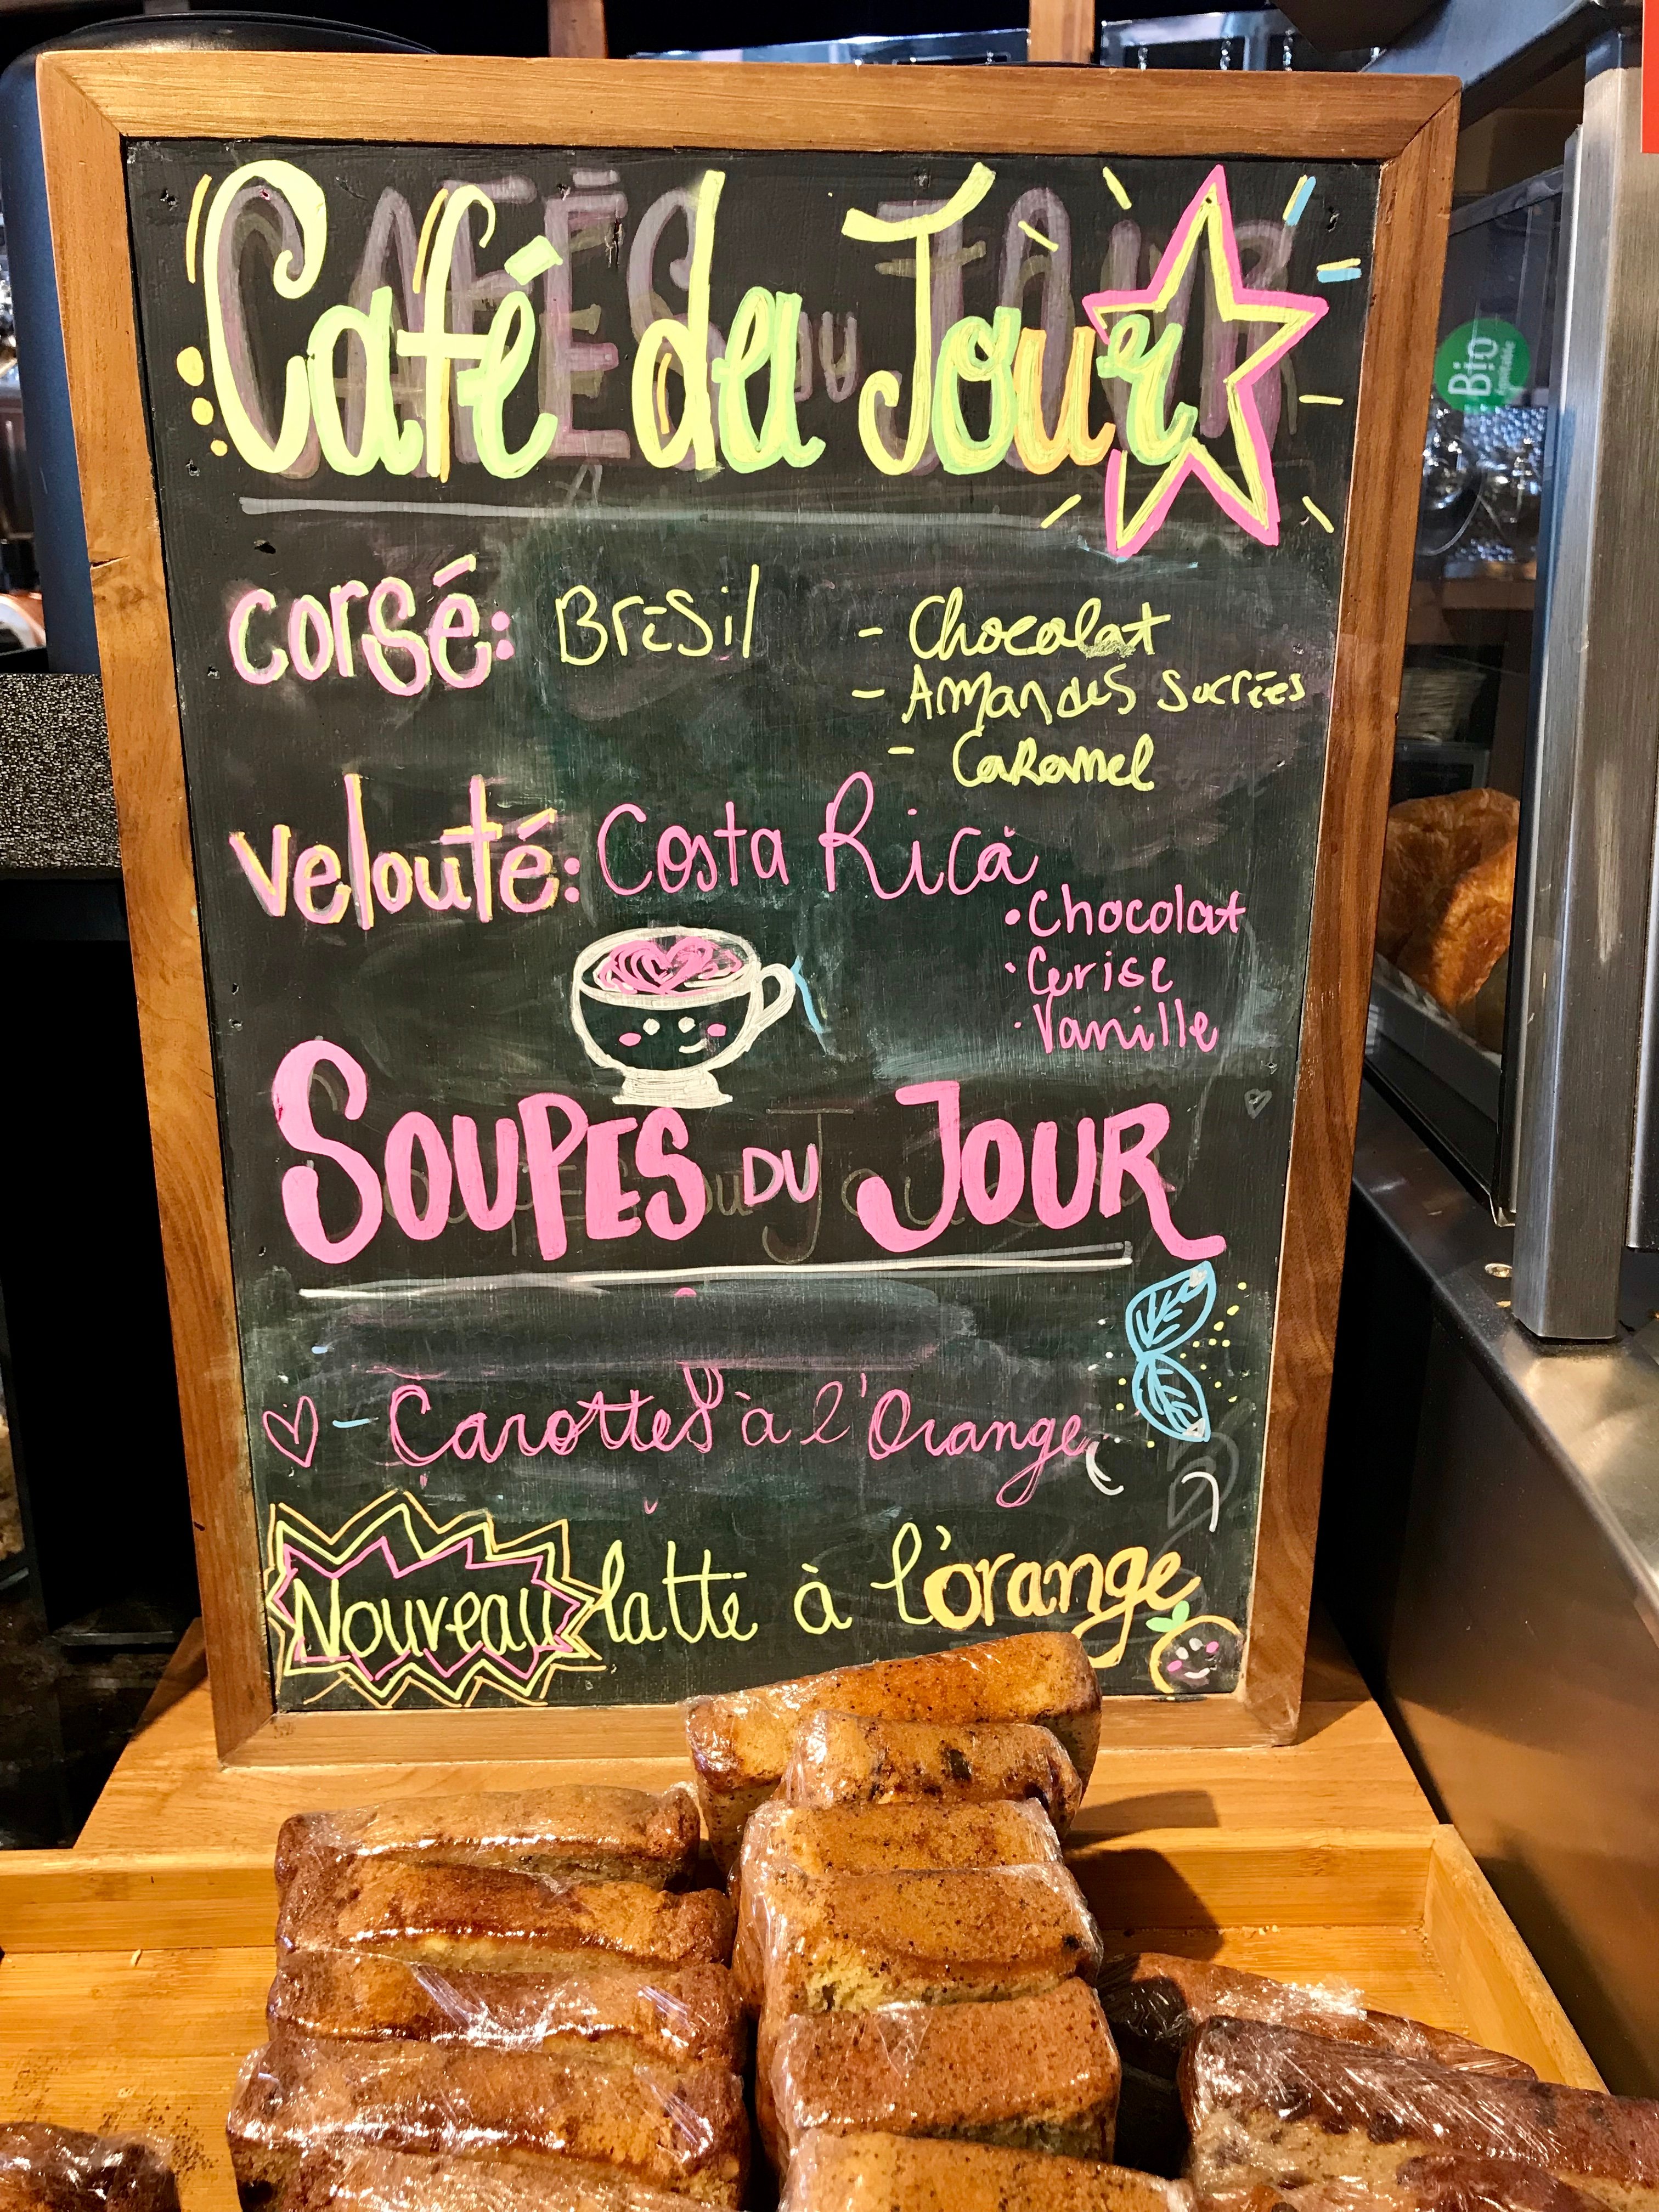 Café du Jour
corsé: Brésil
- Chocolat
- Amandes sucrées
- Caramel
velouté: Costa Rica
• Chocolat
• Cerise
• Vanille
SOUPES DU JOUR
- Carottes à l'Orange
Nouveau latte à l'orange
Bio